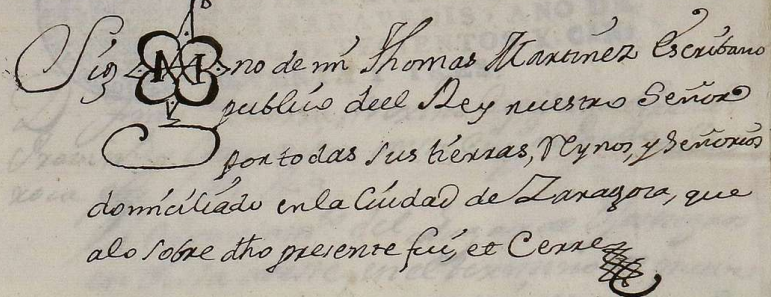 Sig no de mi Thomas Martinez Escribano
publico deel Rey nuestro Señor
por todas sus tierras, Rynos, y señorios
domiciliado en la Ciudad de Zaragoza, que
a lo sobre dho presente fui, et Cerre